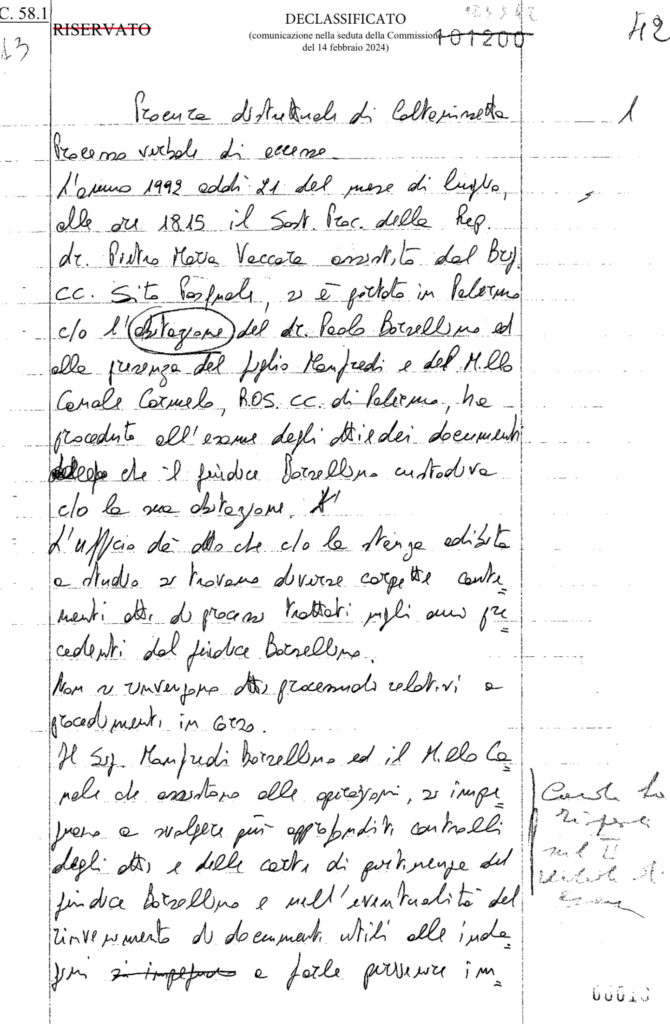 C. 58.1
RISERVATO
DECLASSIFICATO
(comunicazione nella seduta della Commissione
del 14 febbraio 2024)
101200
42
13
1
Procura distrettuale di Caltanissetta
Processo verbale di accesso.
L'anno 1992 addì 21 del mese di luglio,
alle ore 18.15 il Sost. Proc. della Rep.
dr. Pietro Maria Vaccara assistito dal Brig.
CC. Sito Pasquale, si è portato in Palermo
c/o l'abitazione del dr. Paolo Borsellino ed
alla presenza del figlio Manfredi e del M.llo
Canale Carmelo, ROS. CC. di Palermo, ha
proceduto all'esame degli atti e dei documenti
che il giudice Borsellino custodiva
c/o la sua abitazione.
L'ufficio dà atto che c/o la stanza adibita
a studio si trovano diverse carpette conte=
nenti atti di processi trattati negli anni pre=
cedenti dal giudice Borsellino.
Non si rinvengono atti processuali relativi a
procedimenti in corso.
Il Sig. Manfredi Borsellino ed il M.llo Ca=
nale che assistono alle operazioni, si impe=
gnano a svolgere più approfonditi controlli
degli atti e delle carte di pertinenza del
giudice Borsellino e nell'eventualità del
rinvenimento di documenti utili alle inda=
gini si impegnano a farle pervenire im=
00013